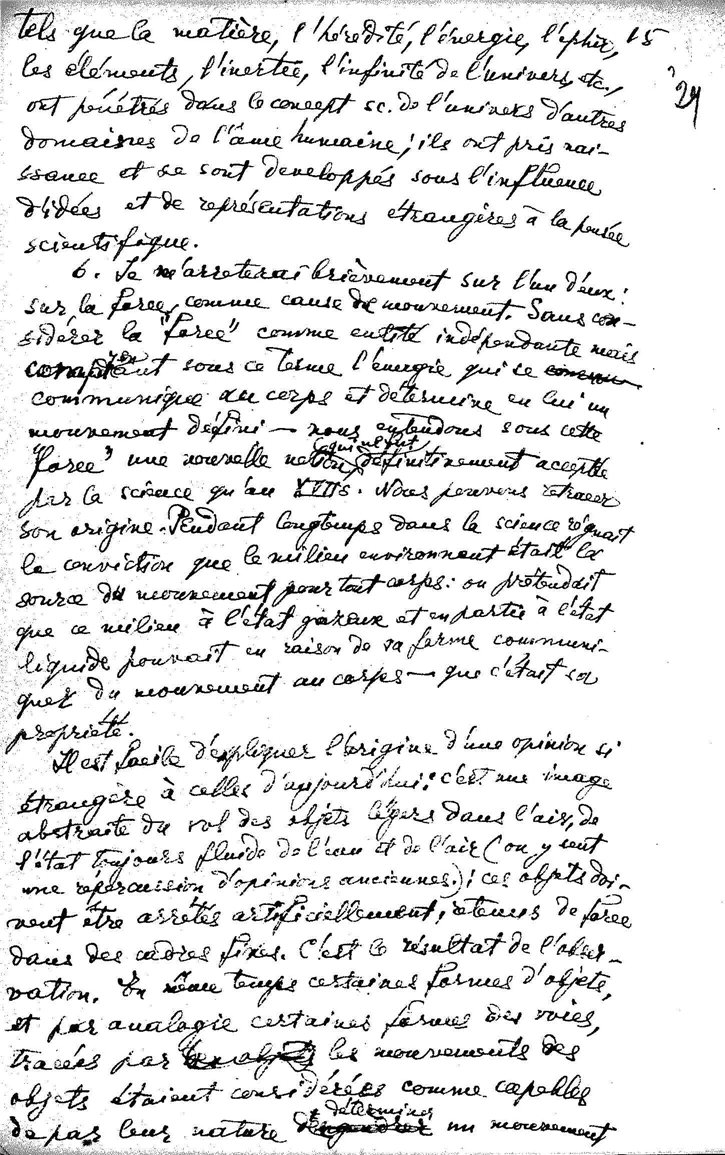 tels que la matière, l'hérédité, l'énergie, l'éphir, 15
24
les éléments, l'inertie, l'infinité de l'univers, etc.,
ont pénétrés dans le concept sc. de l'univers d'autres
domaines de l'âme humaine; ils ont pris nai-
ssance et se sont developpés sous l'influence
d'idées et de représentations étrangères à la pensée
scientifique.
6. Je m'arreterai brièvement sur l'un d'eux:
sur la force, comme cause de mouvement. Sans con-
sidérer la "force" comme entité indépendante mais
comprenant sous ce terme l'énergie qui se
communique au corps et détermine en lui un
mouvement défini — nous entendons sous cette
"force" une nouvelle notion, qui ne fut définitivement acceptée
par la science qu'au XVIIs. Nous pouvons retracer
son origine. Pendant longtemps dans la science régnait
la conviction que le milieu environnant était la
source du mouvement pour tout corps: on prétendait
que ce milieu à l'état gazeux et en partie à l'état
liquide pouvait en raison de sa forme communi-
quer du mouvement au corps — que c'était sa
propriété.
Il est facile d'expliquer l'origine d'une opinion si
étrangère à celles d'aujourd'hui: c'est une image
abstraite du vol des objets légers dans l'air, de
l'état toujours fluide de l'eau et de l'air (on y sent
une répercussion d'opinions anciennes); ces objets doi-
vent être arrêtés artificiellement, retenus de force
dans des cadres fixes. C'est le résultat de l'obser-
vation. En même temps certaines formes d'objets,
et par analogie certaines formes des voies,
tracées par les mouvements des
objets étaient considérées comme capables
de par leur nature déterminer un mouvement